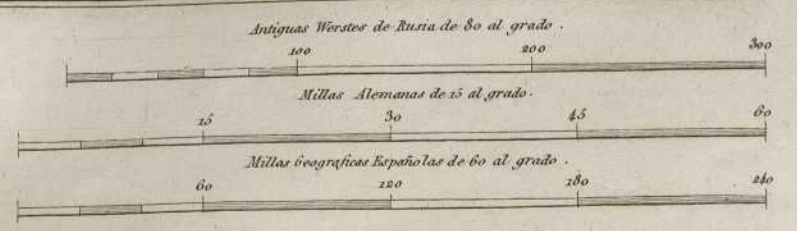 Antiguas Werstes de Rusia de 80 al grado.
100 200 300
Millas Alemanas de 15 al grado.
15 30 45 60
Millas Geograficas Españolas de 60 al grado.
60 120 180 240